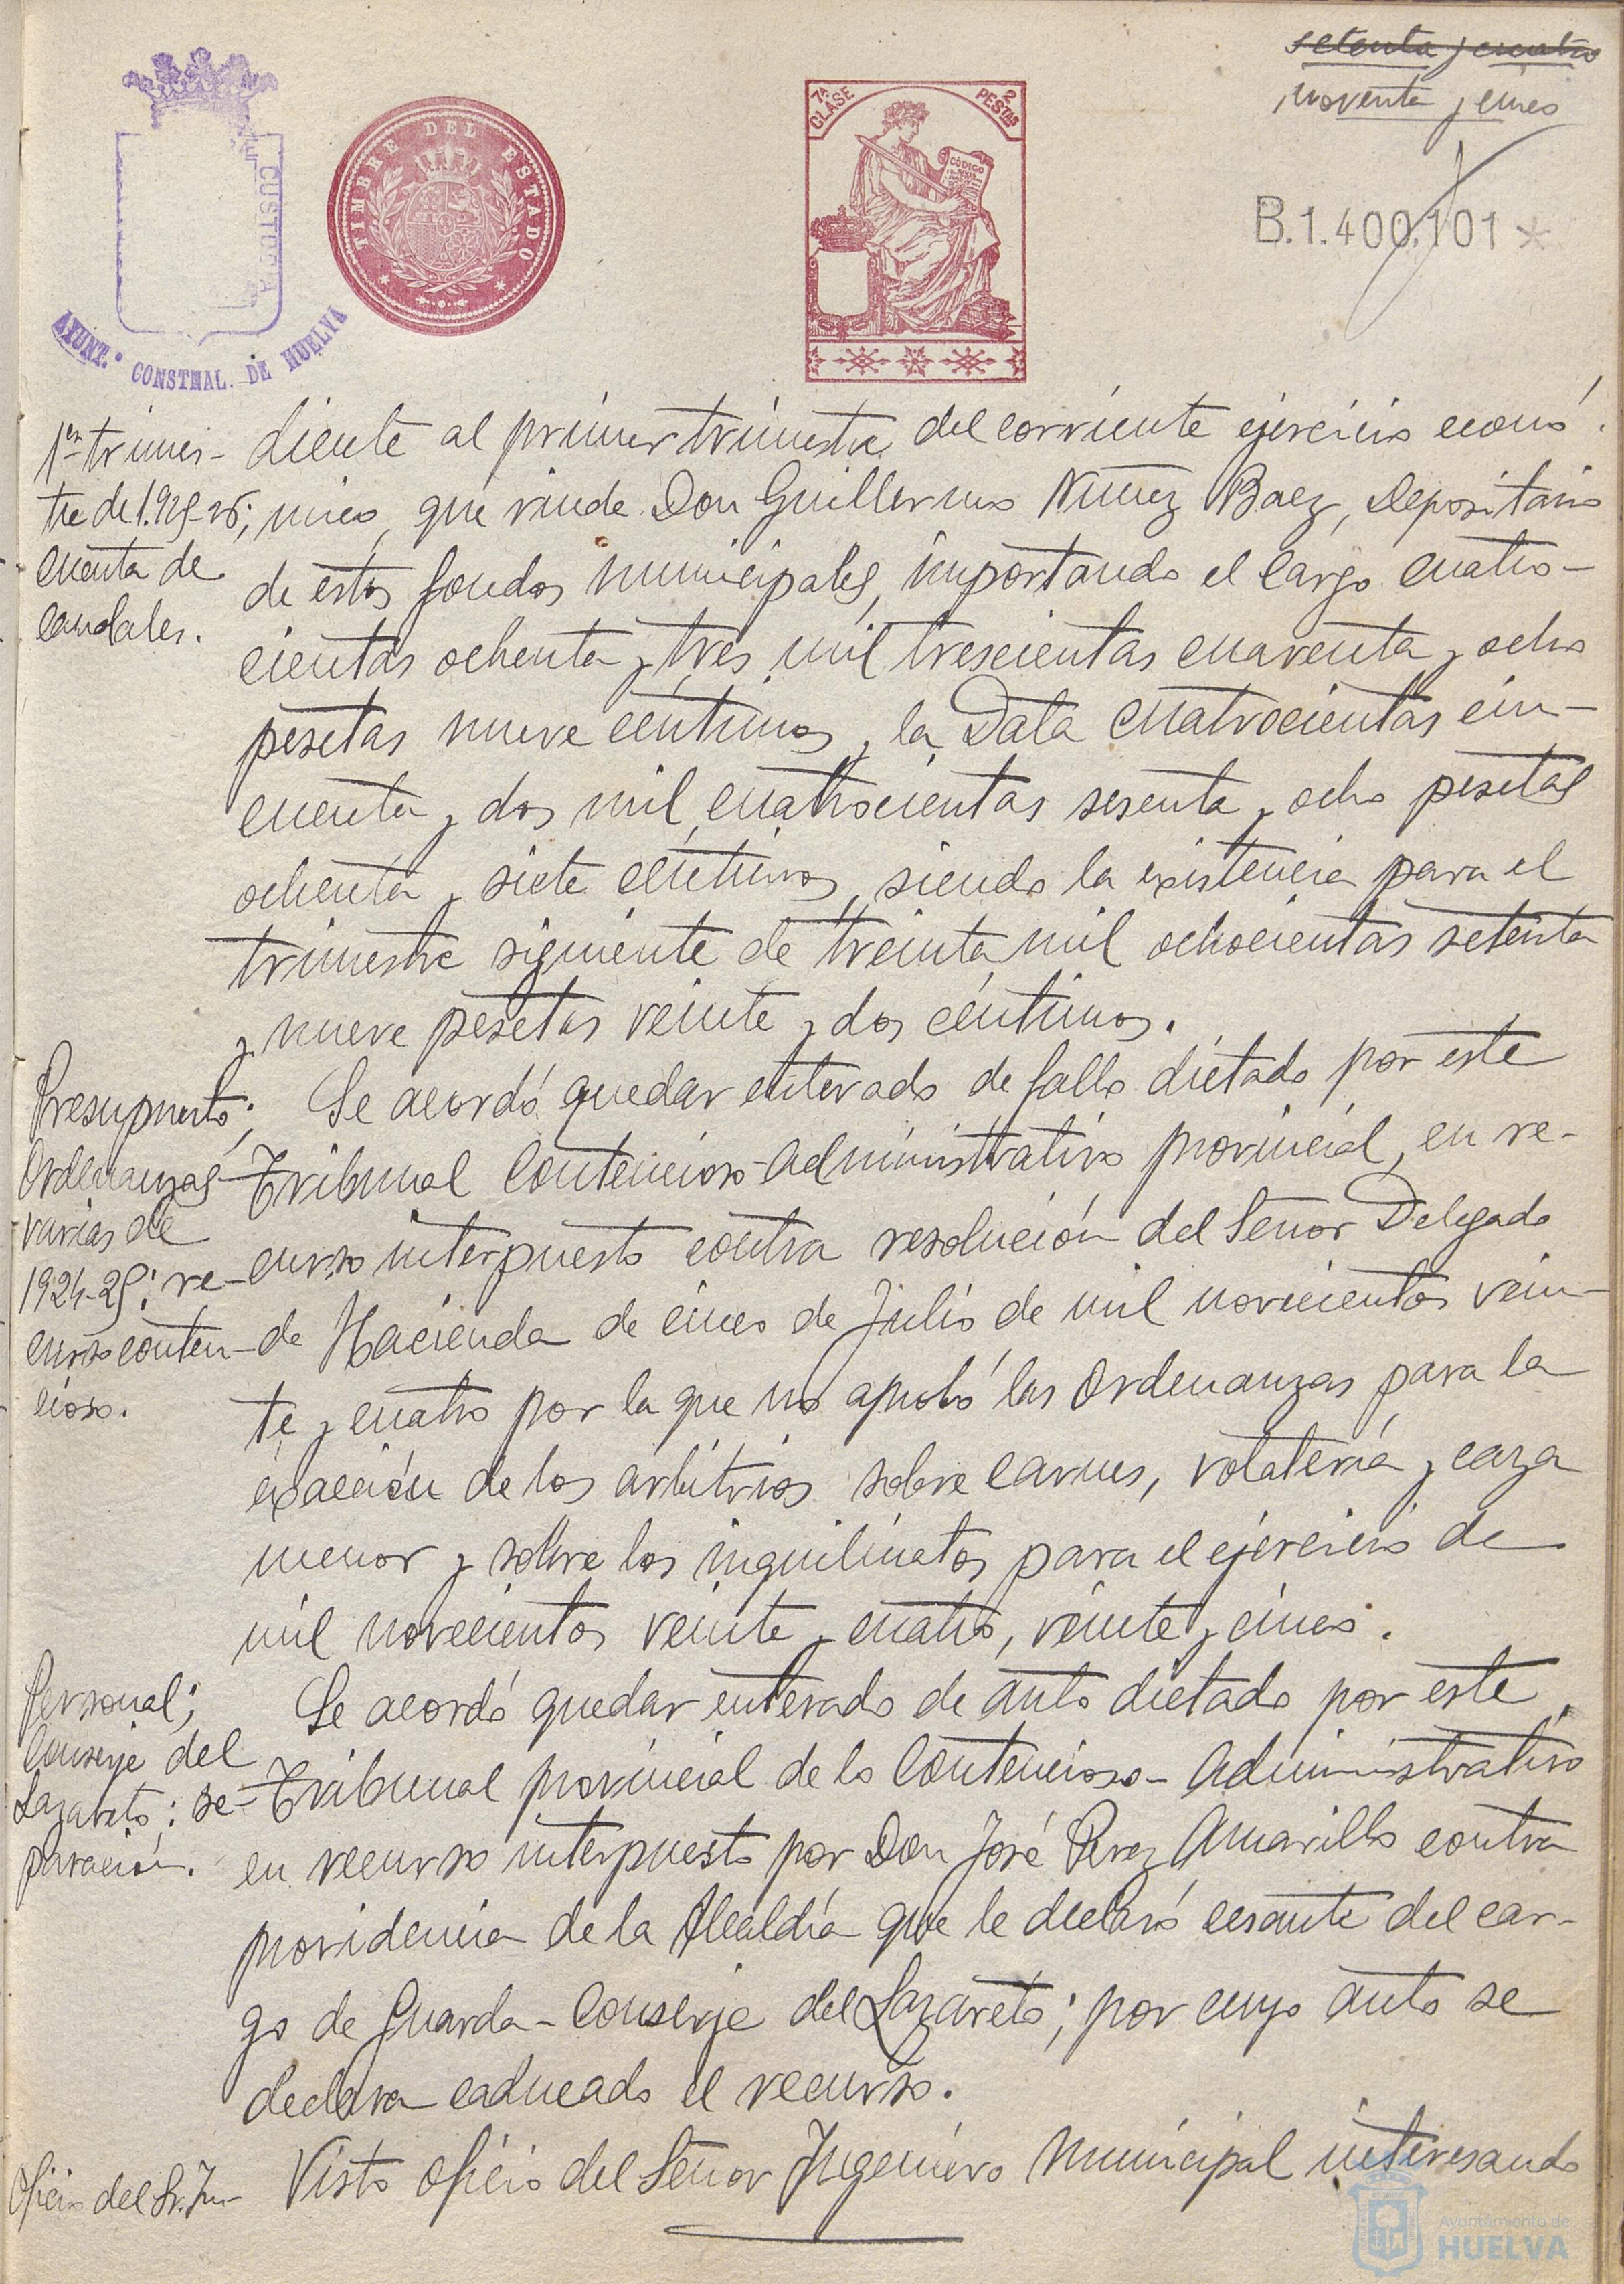 setenta y cuatro
noventa y cinco
B.1.400.101 *
7ª CLASE
2 PESTAS
CÓDIGO
TIMBRE DEL ESTADO
CUSTODIA
AYUNT.º CONSTNAL. DE HUELVA
1er trimes-
tre de 1.925-26;
cuenta de
caudales.
diente al primer trimestre del corriente ejercicio econó-
mico, que rinde Don Guillermo Núñez Baez, Depositario
de estos fondos municipales, importando el cargo cuatro-
cientas ochenta y tres mil trescientas cuarenta y ocho
pesetas nueve céntimos y la Data cuatrocientas cin-
cuenta y dos mil cuatrocientas sesenta y ocho pesetas
ochenta y siete céntimos, siendo la existencia para el
trimestre siguiente de treinta mil ochocientas setenta
y nueve pesetas veinte y dos céntimos.
Presupuesto;
Ordenanzas
varias de
1924-25: re-
curso conten-
cioso.
Se acordó quedar enterado de fallo dictado por este
Tribunal Contencioso-administrativo provincial, en re-
curso interpuesto contra resolución del Señor Delegado
de Hacienda de cinco de Julio de mil novecientos vein-
te y cuatro por la que no aprobó las Ordenanzas para la
exacción de los arbitrios sobre carnes, volatería y caza
menor y sobre los inquilinatos para el ejercicio de
mil novecientos veinte y cuatro, veinte y cinco.
Personal;
Conserje del
Lazareto: se-
paración.
Se acordó quedar enterado de auto dictado por este
Tribunal provincial de lo Contencioso-Administrativo
en recurso interpuesto por Don José Perez Amarillo contra
providencia de la Alcaldía que le declaró cesante del car-
go de Guarda-Conserje del Lazareto; por cuyo auto se
declara caducado el recurso.
Oficio del Sr. In-
Visto oficio del Señor Ingeniero Municipal interesando
Ayuntamiento de
HUELVA